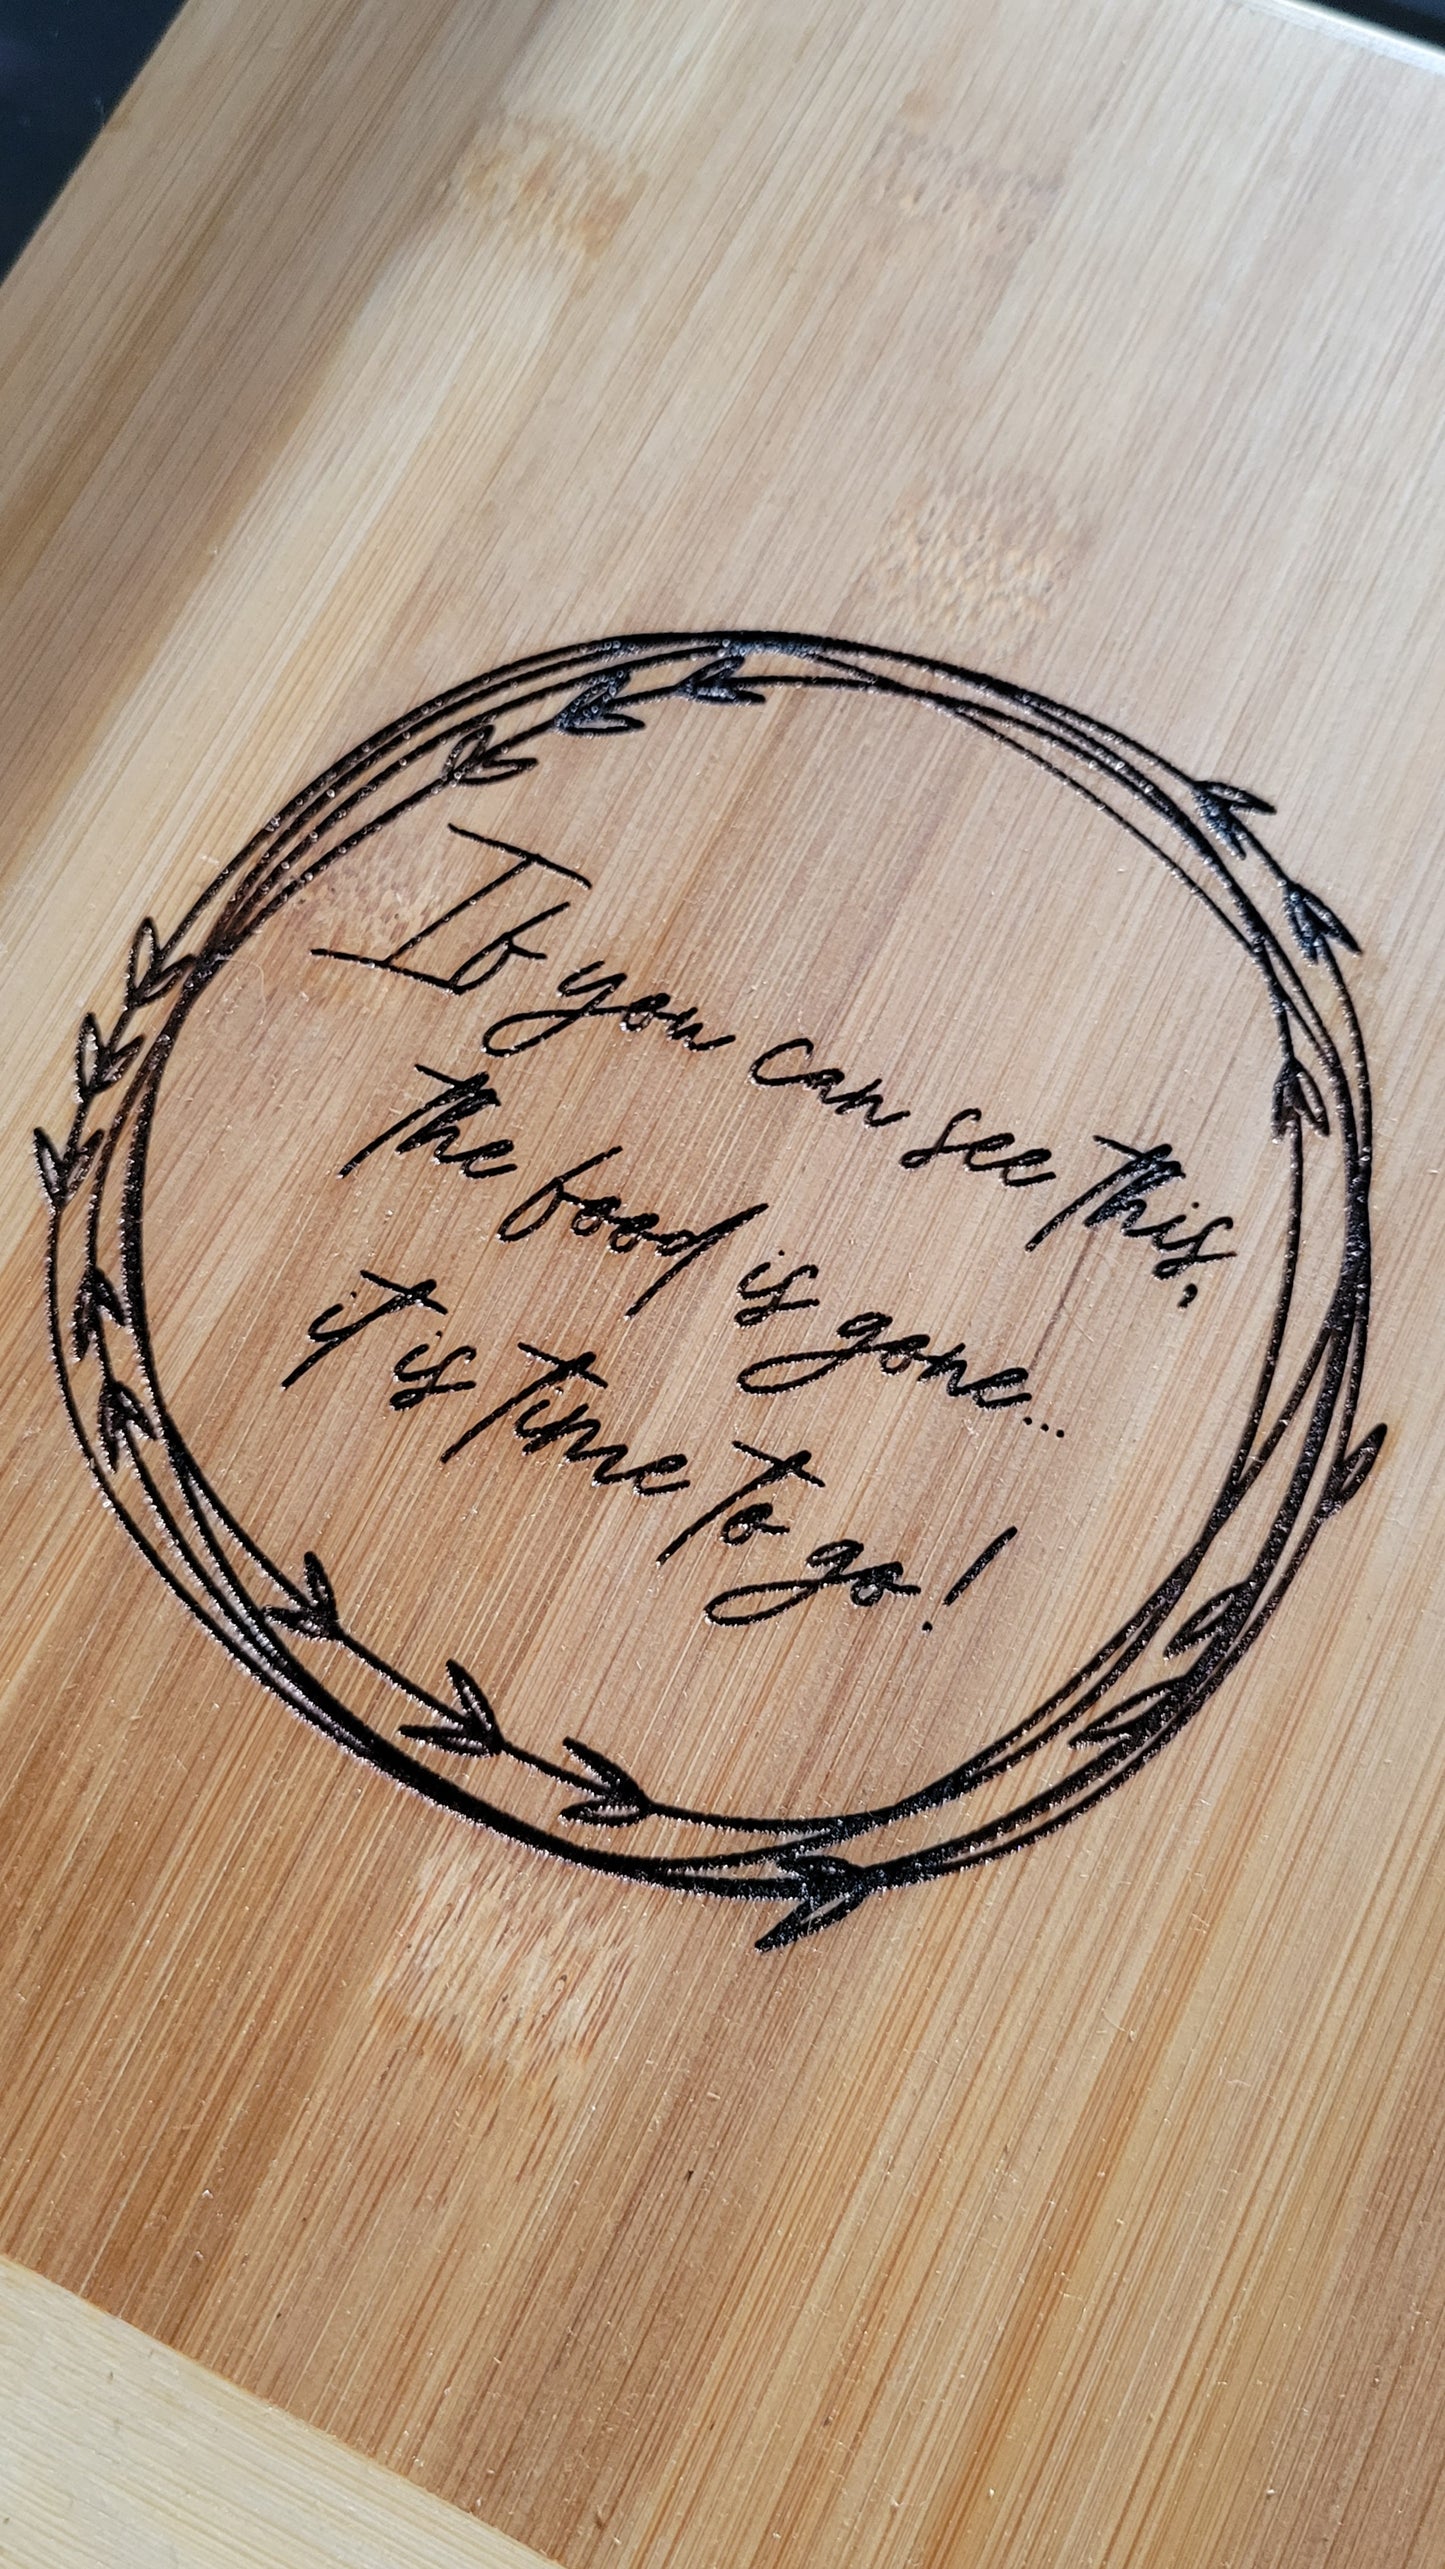 If you can see this,
the food is gone...
it is time to go!